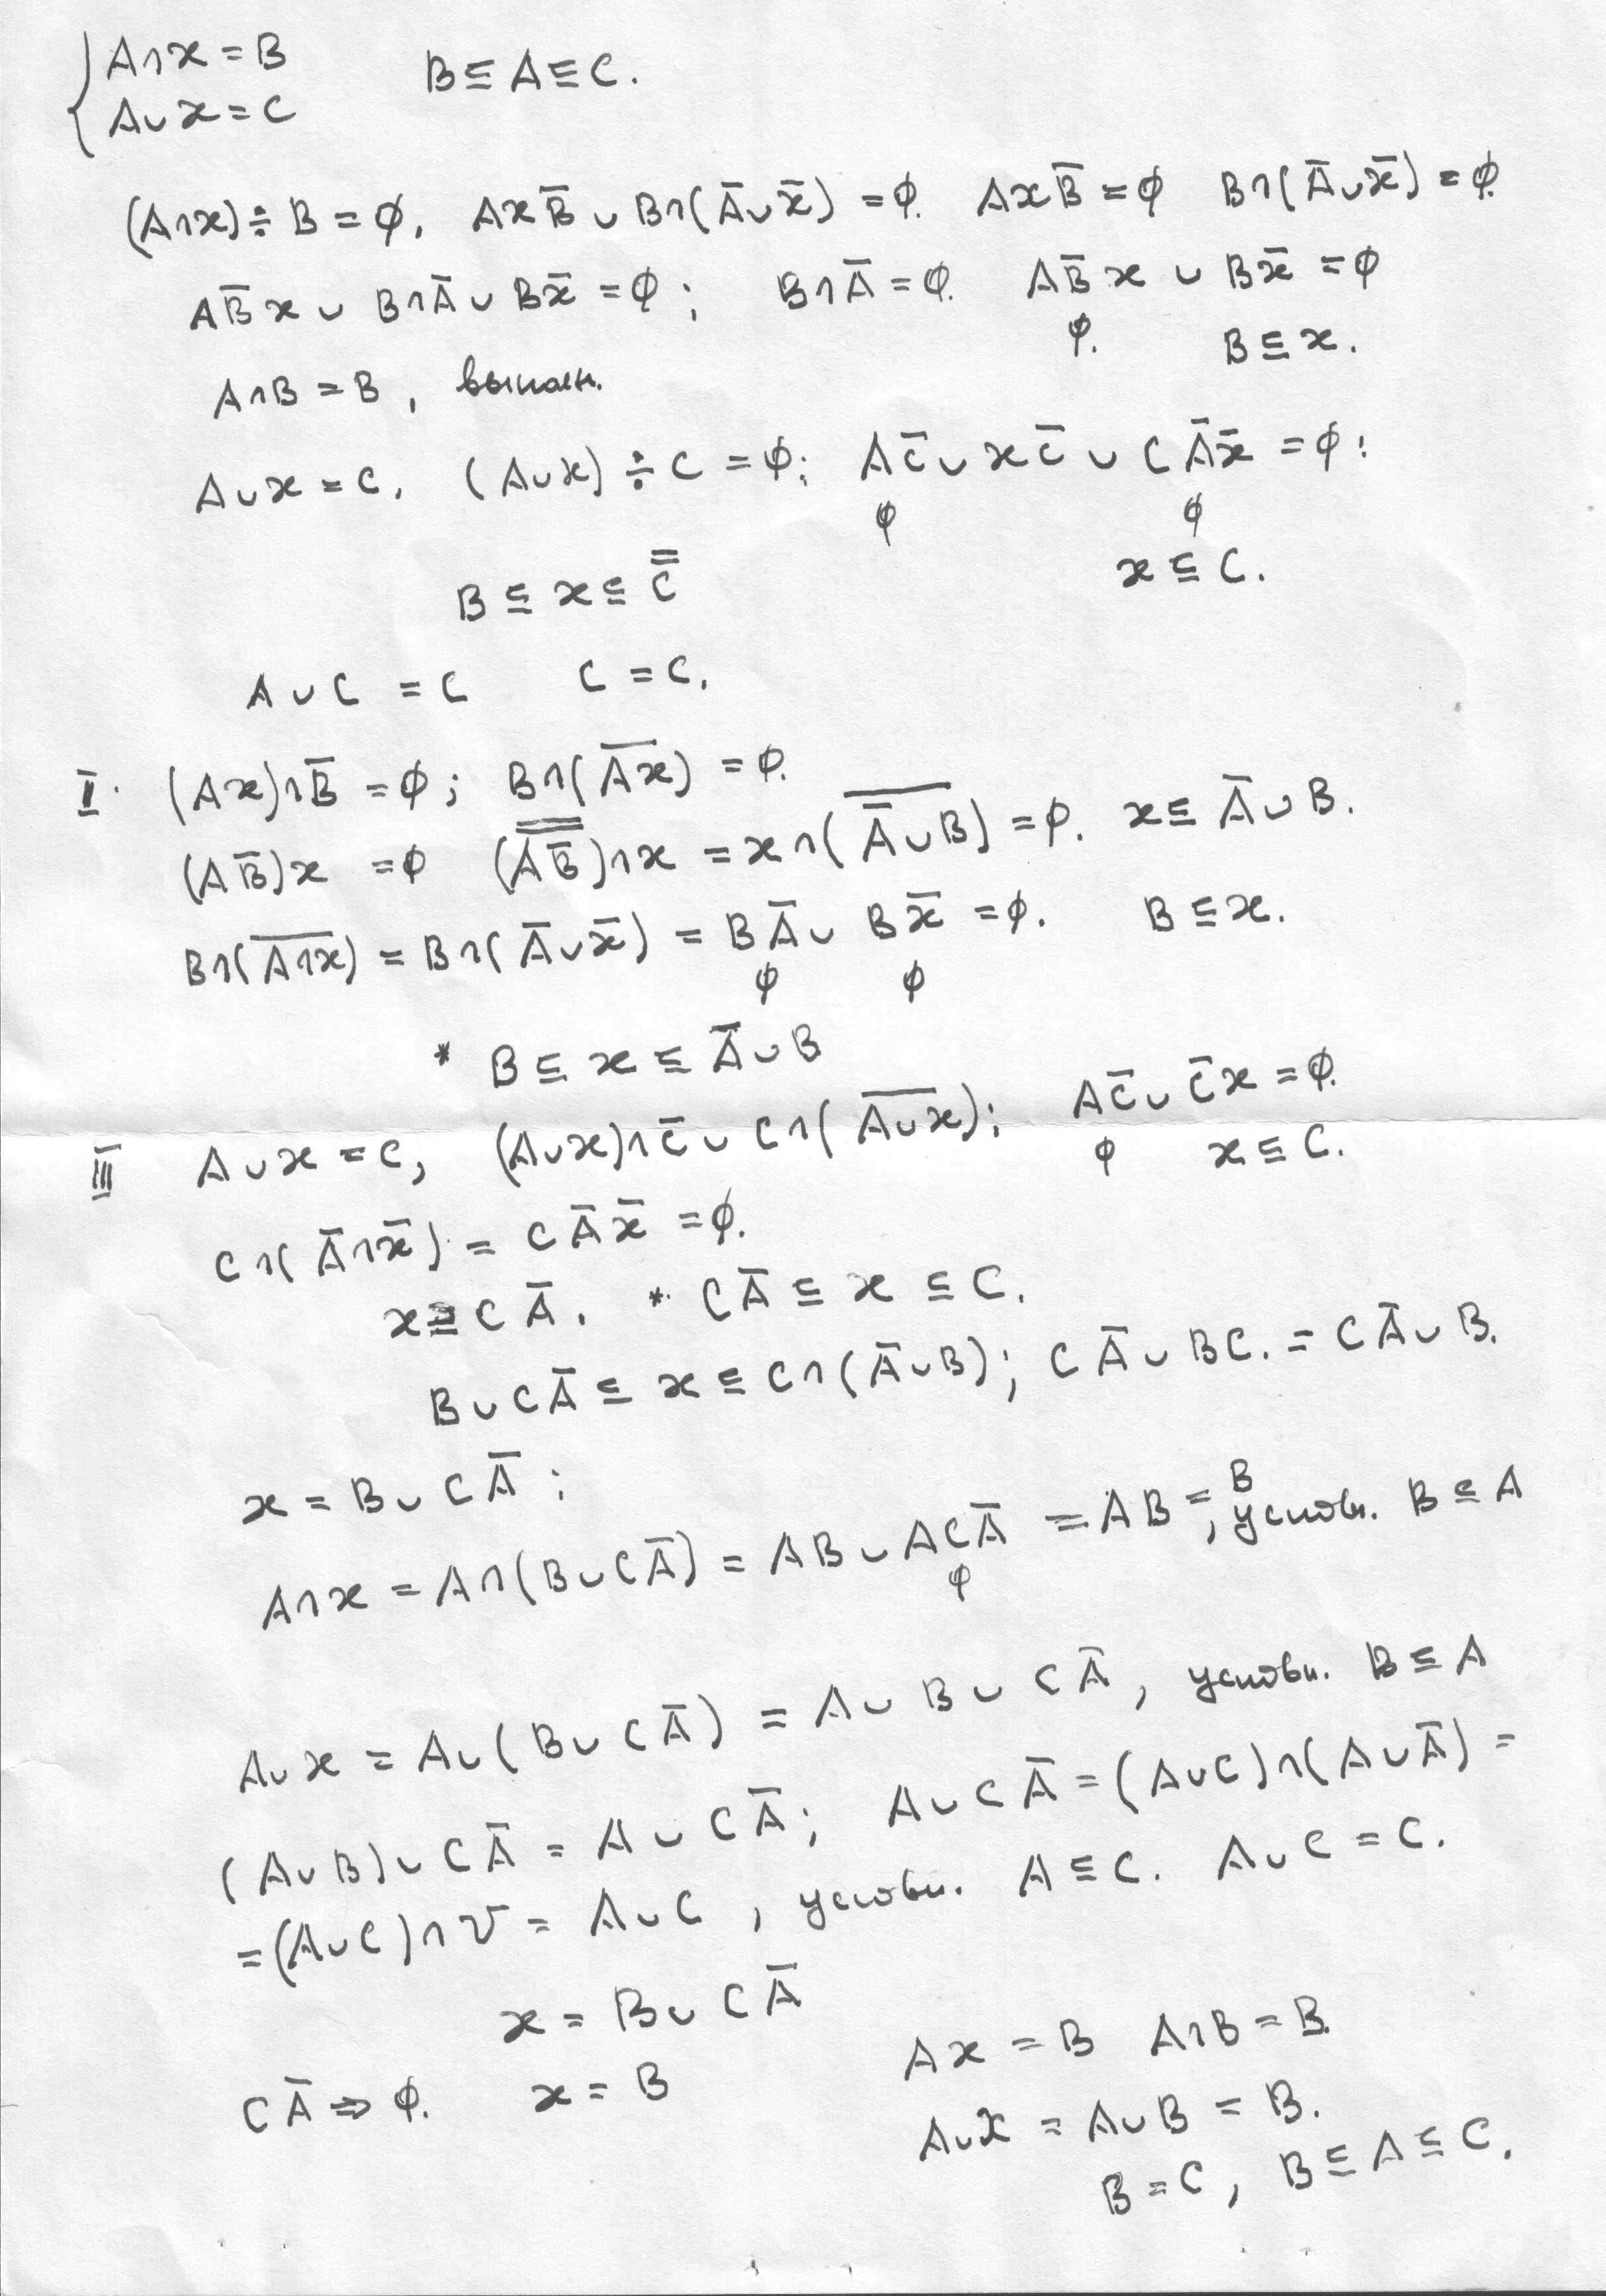 { A∩x = B      B ⊆ A ⊆ C.
{ A∪x = C
(A∩x) ÷ B = ∅,  AxB̅ ∪ B∩(A̅∪x̅) = ∅.  AxB̅ = ∅  B∩(A̅∪x̅) = ∅.
AB̅x ∪ B∩A̅ ∪ Bx̅ = ∅;  B∩A̅ = ∅.  AB̅x ∪ Bx̅ = ∅
∅.  B ⊆ x.
A∩B = B, выполн.
A∪x = C,  (A∪x) ÷ C = ∅;  AC̅ ∪ xC̅ ∪ CA̅x̅ = ∅;
∅  ∅
x ⊆ C.
B ⊆ x ⊆ C̿
A∪C = C   C = C.
II. (Ax)∩B̅ = ∅;  B∩(A̅x̅) = ∅.
(AB̅)x = ∅  (A̿B̿̅)∩x = x∩(\overline{A̅∪B}) = ∅.  x ⊆ A̅∪B.
B∩(\overline{A∩x}) = B∩(A̅∪x̅) = BA̅ ∪ Bx̅ = ∅.  B ⊆ x.
∅  ∅
* B ⊆ x ⊆ A̅∪B
III A∪x = C,  (A∪x)∩C̅ ∪ C∩(\overline{A∪x});  AC̅ ∪ C̅x = ∅.
∅  x ⊆ C.
C∩(A̅∩x̅) = CA̅x̅ = ∅.
x ⊇ CA̅.  * CA̅ ⊆ x ⊆ C.
B∪CA̅ ⊆ x ⊆ C∩(A̅∪B);  CA̅∪BC. = CA̅∪B.
x = B∪CA̅;
A∩x = A∩(B∪CA̅) = AB∪ACA̅ = AB = B, услов. B ⊆ A
∅
A∪x = A∪(B∪CA̅) = A∪B∪CA̅, условн. B ⊆ A
(A∪B)∪CA̅ = A∪CA̅;  A∪CA̅ = (A∪C)∩(A∪A̅) =
= (A∪C)∩U = A∪C, условн. A ⊆ C.  A∪C = C.
x = B∪CA̅
Ax = B  A∩B = B.
CA̅ ⇒ ∅.  x = B
A∪x = A∪B = B.
B = C, B ⊆ A ⊆ C.